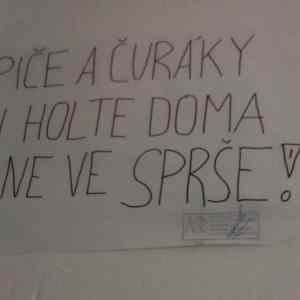 PIČE A ČURÁKY
I HOLTE DOMA
NE VE SPRŠE!